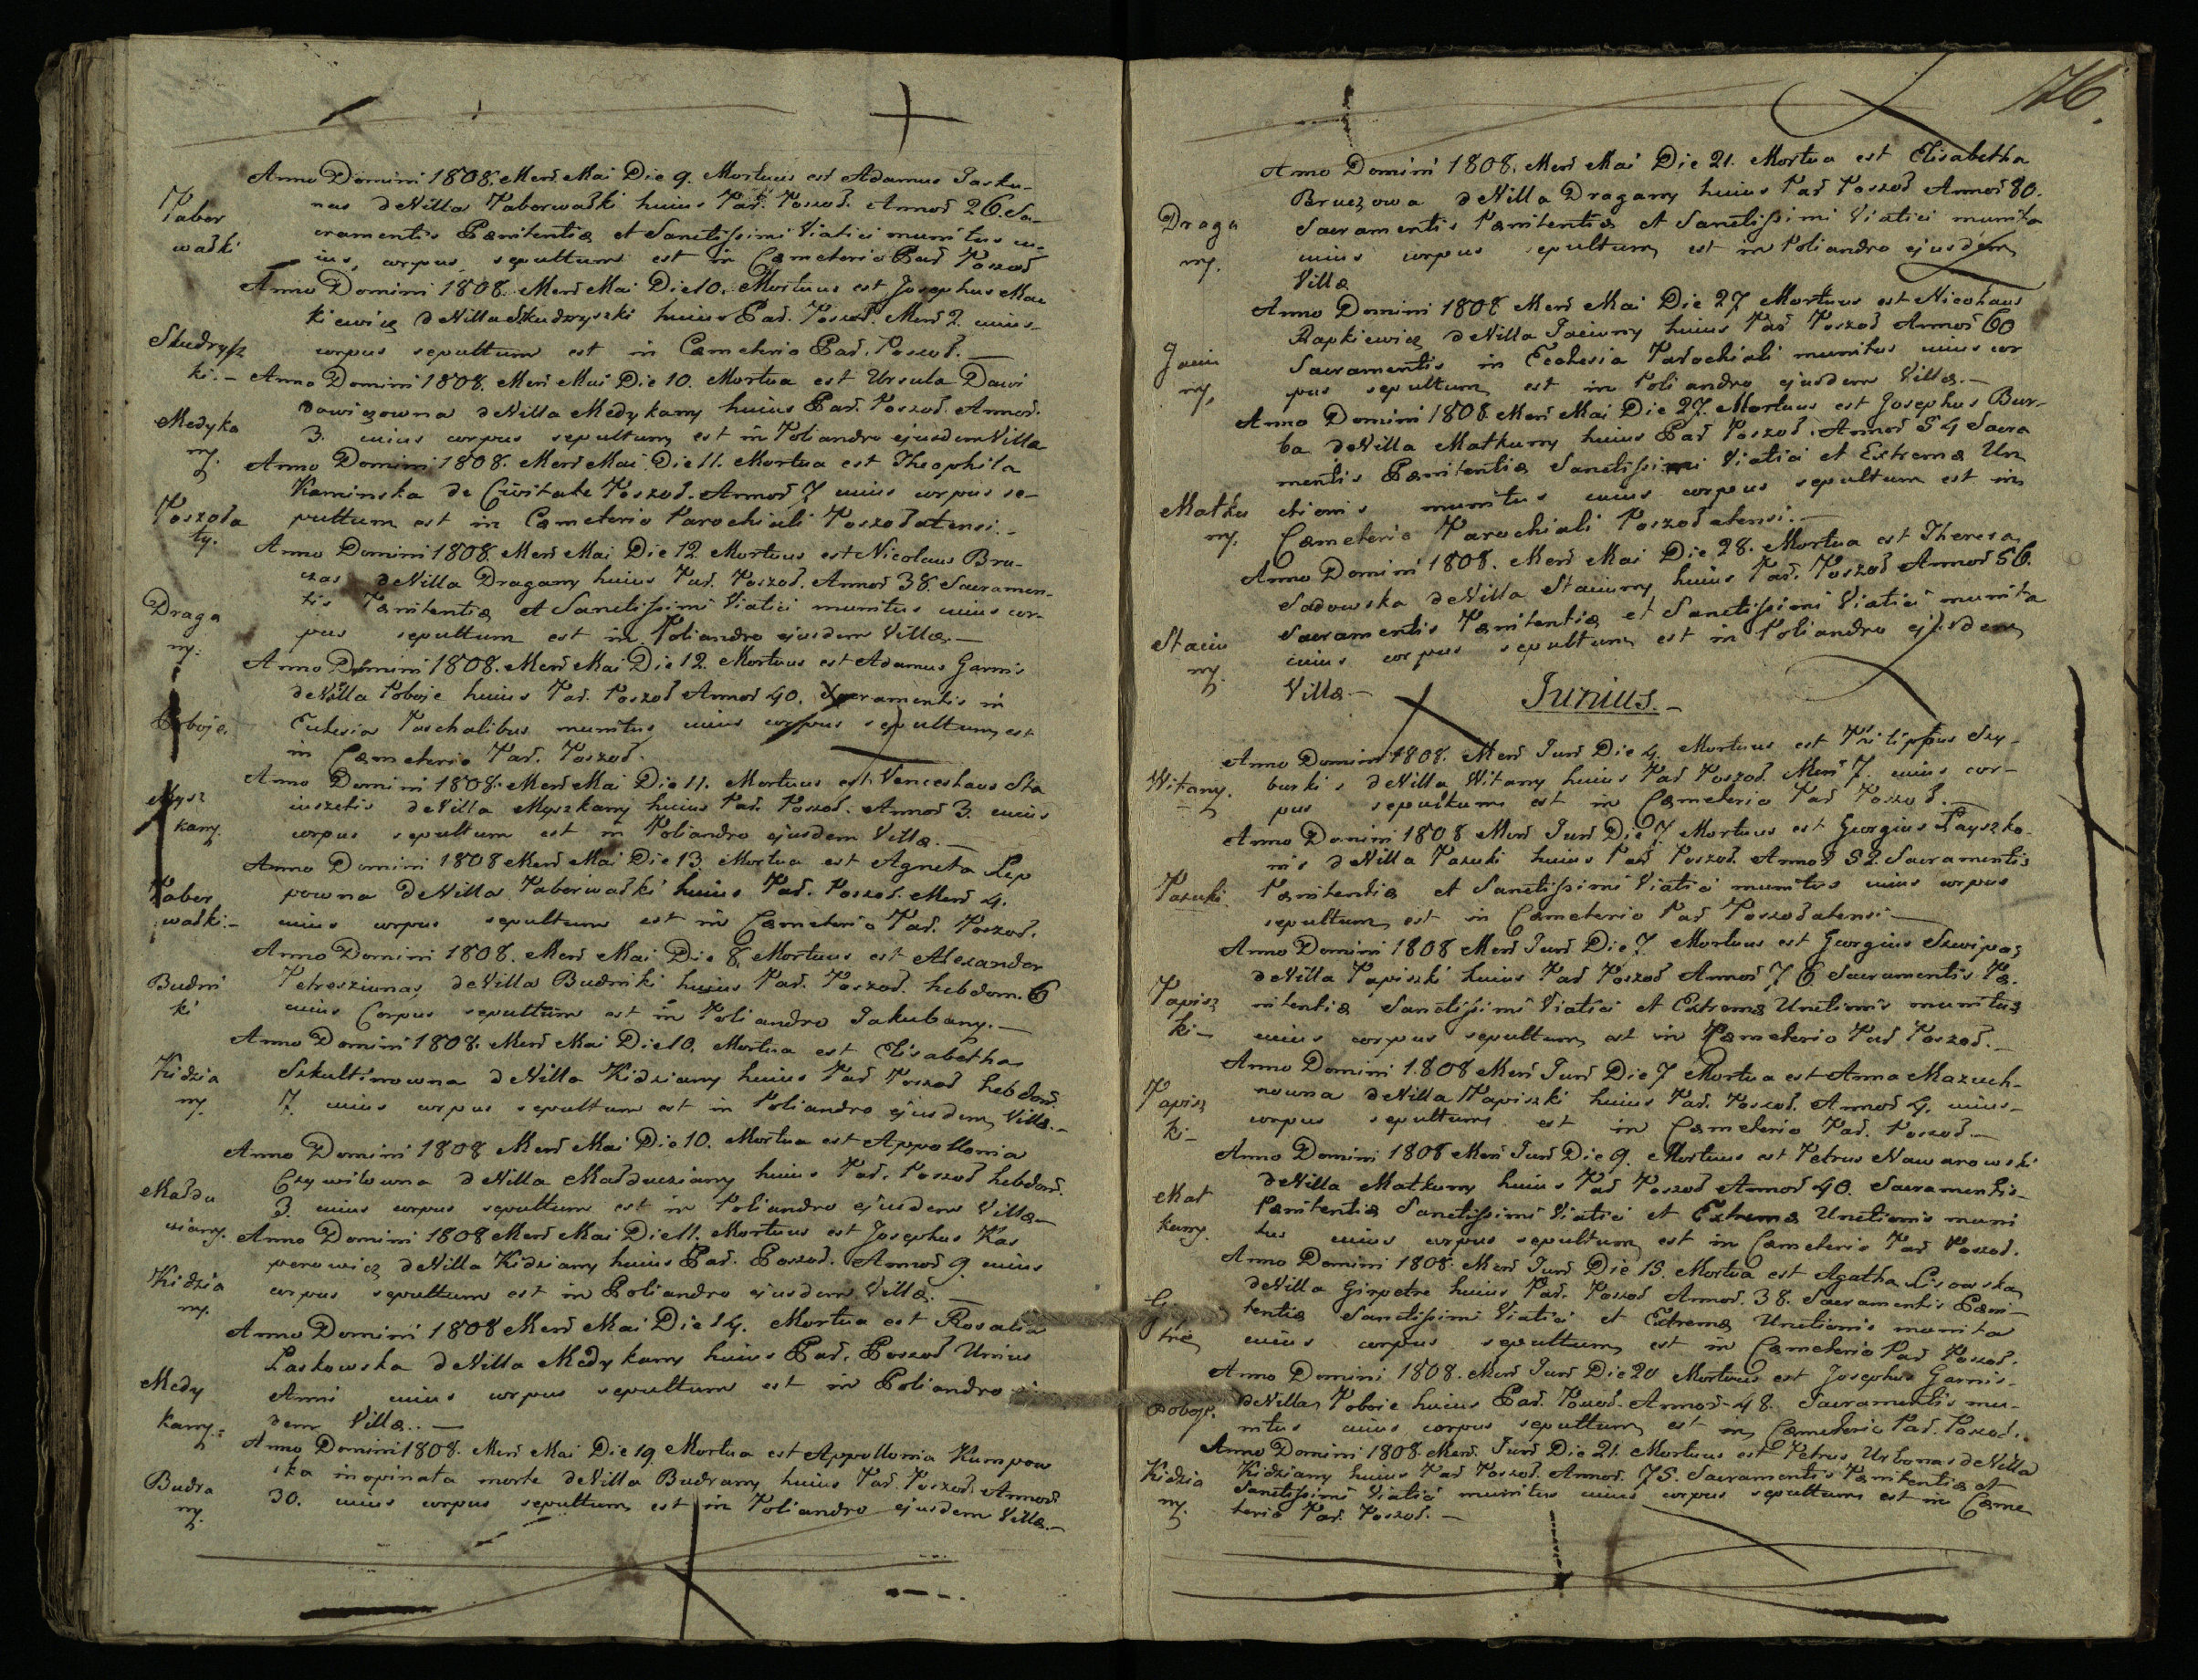 Anno Domini 1808. Mens Mai Die 9. Mortuus est Adamus Jasku-
Tabor
nas de Villa Taborwałki huius Par. Poszoł. Annor 26. Sa-
wałki
cramentis Pænitentiæ et Sanctissimi Viatici munitus cu-
ius, corpus, sepultum est in Cæmeterio Par Poszoł
Anno Domini 1808. Mens Mai Die 10. Mortuus est Josephus Mac
kiewicz de Villa Skudryszki huius Par. Poszoł. Mens 2. cuius
Skudrysz
ki.-
corpus sepultum est in Cæmeterio Par. Poszoł.-
Anno Domini 1808. Mens Mai Die 10. Mortua est Ursula Dawi
dowiczowna de Villa Medykany huius Par. Poszoł. Annor.
Medyka
ny.
3. cuius corpus sepultum est in Poliandro ejusdem Villæ
Anno Domini 1808. Mens Mai Die 11. Mortua est Theophila
Kaminska de Civitate Poszoł. Annor 7 cuius corpus se-
Poszoła
ty.
pultum est in Cæmeterio Parochiali Poszołatensi.-
Anno Domini 1808. Mens Mai Die 12 Mortuus est Nicolaus Bru-
czas de Villa Dragany huius Par. Poszoł. Annor 38. Sacramen-
Draga
ny.
tis Pænitentiæ et Sanctissimi Viatici munitus cuius cor-
pus sepultum est in Poliandro ejusdem Villæ.-
Anno Domini 1808. Mens Mai Die 12. Mortuus est Adamus Garnis
de Villa Poboje huius Par. Poszoł Annor 40. Sacramentis in
Poboje.
Eclesia Paschalibus munitus cuius corpus sepultum est
in Cæmeterio Par. Poszoł.
Anno Domini 1808. Mens Mai Die 11. Mortuus est Venceslaus Sta
Mysz
kany.
iuszelis de Villa Myszkany huius Par. Poszoł. Annor 3. cuius
corpus sepultum est in Poliandro ejusdem Villæ.-
Anno Domini 1808 Mens Mai Die 13. Mortua est Agneta Lep
Tabor
wałki.-
powna de Villa Taborwałki huius Par. Poszoł. Mens 4.
cuius corpus sepultum est in Cæmeterio Par. Poszoł.
Anno Domini 1808. Mens Mai Die 8. Mortuus est Alexander
Budni
ki
Petresziunas de Villa Budniki huius Par. Poszoł. hebdom. 6
cuius Corpus sepultum est in Poliandro Jakubany.-
Anno Domini 1808. Mens Mai Die 10. Mortua est Elisabetha
Kidzia
ny.
Szkultinowna de Villa Kidziany huius Par Poszoł hebdom.
7. cuius corpus sepultum est in Poliandro ejusdem Villæ.-
Anno Domini 1808 Mens Mai Die 10. Mortua est Appollonia
Małdu
ciany.
Czywilowna de Villa Małduciany huius Par. Poszoł hebdom.
3. cuius corpus sepultum est in Poliandro ejusdem Villæ-
Anno Domini 1808 Mens Mai Die 11. Mortuus est Josephus Kas
Kidzia
ny.
perowicz de Villa Kidziany huius Par. Poszoł. Annor 9. cuius
corpus sepultum est in Poliandro ejusdem Villæ.-
Anno Domini 1808 Mens Mai Die 14. Mortua est Rosalia
Laskowska de Villa Medykany huius Par. Poszoł Unius
Medy
kany.
Anni cuius corpus sepultum est in Poliandro
dem Villæ..-
Anno Domini 1808. Mens Mai Die 19 Mortua est Appollonia Kumpow
Budra
ny.
ska inopinata morte de Villa Budrany huius Par. Poszoł. Annor
30. cuius corpus sepultum est in Poliandro ejusdem Villæ.-
76.
Anno Domini 1808. Mens Mai Die 21. Mortua est Elisabetha
Bruczowa de Villa Dragany huius Par Poszoł Annor 80.
Draga
ny.
Sacramentis Pænitentiæ et Sanctissimi Viatici munita
cuius corpus sepultum est in Poliandro ejusdem
Villæ
Anno Domini 1808 Mens Mai Die 27 Mortuus est Nicolaus
Rapkiewicz de Villa Jaciuny huius Par Poszoł Annor 60
Jaciu
ny,
Sacramentis in Ecclesia Parochiali munitus cuius cor
pus sepultum est in Poliandro ejusdem Villæ.-
Anno Domini 1808. Mens Mai Die 27. Mortuus est Josephus Bur-
ba de Villa Matkuny huius Par Poszoł. Annor 54 Sacra
mentis Pænitentiæ Sanctissimi Viatici et Extremæ Un
Matku
ny.
ctionis munitus cuius corpus sepultum est in
Cæmeterio Parochiali Poszołatensi.-
Anno Domini 1808. Mens Mai Die 28. Mortua est Theresa
Sadowska de Villa Staciuny huius Par. Poszoł Annor 56.
Staciu
ny.
Sacramentis Pænitentiæ et Sanctissimi Viatici munita
cuius corpus sepultum est in Poliandro ejusdem
Villæ-
Junius.-
Anno Domini 1808. Mens Juni Die 4. Mortuus est Philippus Szy-
Witany.
burkis de Villa Witany huius Par Poszoł. Mens 7. cuius cor-
pus sepultum est in Cæmeterio Par Poszoł.-
Anno Domini 1808 Mens Juni Die 7 Mortuus est Georgius Layszko-
nis de Villa Pazuki huius Par Poszoł. Annor 52. Sacramentis
Pazuki.
Pænitentiæ et Sanctissimi Viatici munitus cuius corpus
sepultum est in Cæmeterio Par Poszołatensi-
Anno Domini 1808 Mens Juni Die 7. Mortuus est Georgius Szwipas
de Villa Papiszki huius Par Poszoł Annor 76 Sacramentis Pæ
Papisz
ki-
nitentiæ Sanctissimi Viatici et Extremæ Unctionis munitus
cuius corpus sepultum est in Cæmeterio Par Poszoł.-
Anno Domini 1808 Mens Juni Die 7 Mortua est Anna Mazuch-
Papisz
ki-
nowna de Villa Papiszki huius Par. Poszoł. Annor 4. cuius
corpus sepultum est in Cæmeterio Par. Poszoł.-
Anno Domini 1808 Mens Juni Die 9. Mortuus est Petrus Nawarowski
de Villa Matkuny huius Par Poszoł Annor 40. Sacramentis
Mat
kuny.
Pænitentiæ Sanctissimi Viatici et Extremæ Unctionis muni
tus cuius corpus sepultum est in Cæmeterio Par Poszoł.
Anno Domini 1808. Mens Juni Die 15. Mortua est Agatha Lisowska
de Villa Girpetre huius Par. Poszoł Annor. 38. Sacramentis Pæni-
tentiæ Sanctissimi Viatici et Extremæ Unctionis munita
tre
cuius corpus sepultum est in Cæmeterio Par Poszoł.
Anno Domini 1808. Mens Juni Die 20 Mortuus est Josephus Garnis-
Poboje.
de Villa Poboje huius Par. Poszoł. Annor 48. Sacramentis mu-
nitus cuius corpus sepultum est in Cæmeterio Par. Poszoł.
Anno Domini 1808. Mens. Juni Die 21. Mortuus est Petrus Urbonas de Villa
Kidzia
ny.
Kidziany huius Par Poszoł. Annor. 75. Sacramentis Pænitentiæ et
Sanctissimi Viatici munitus cuius corpus sepultum est in Cæme
terio Par. Poszoł.-